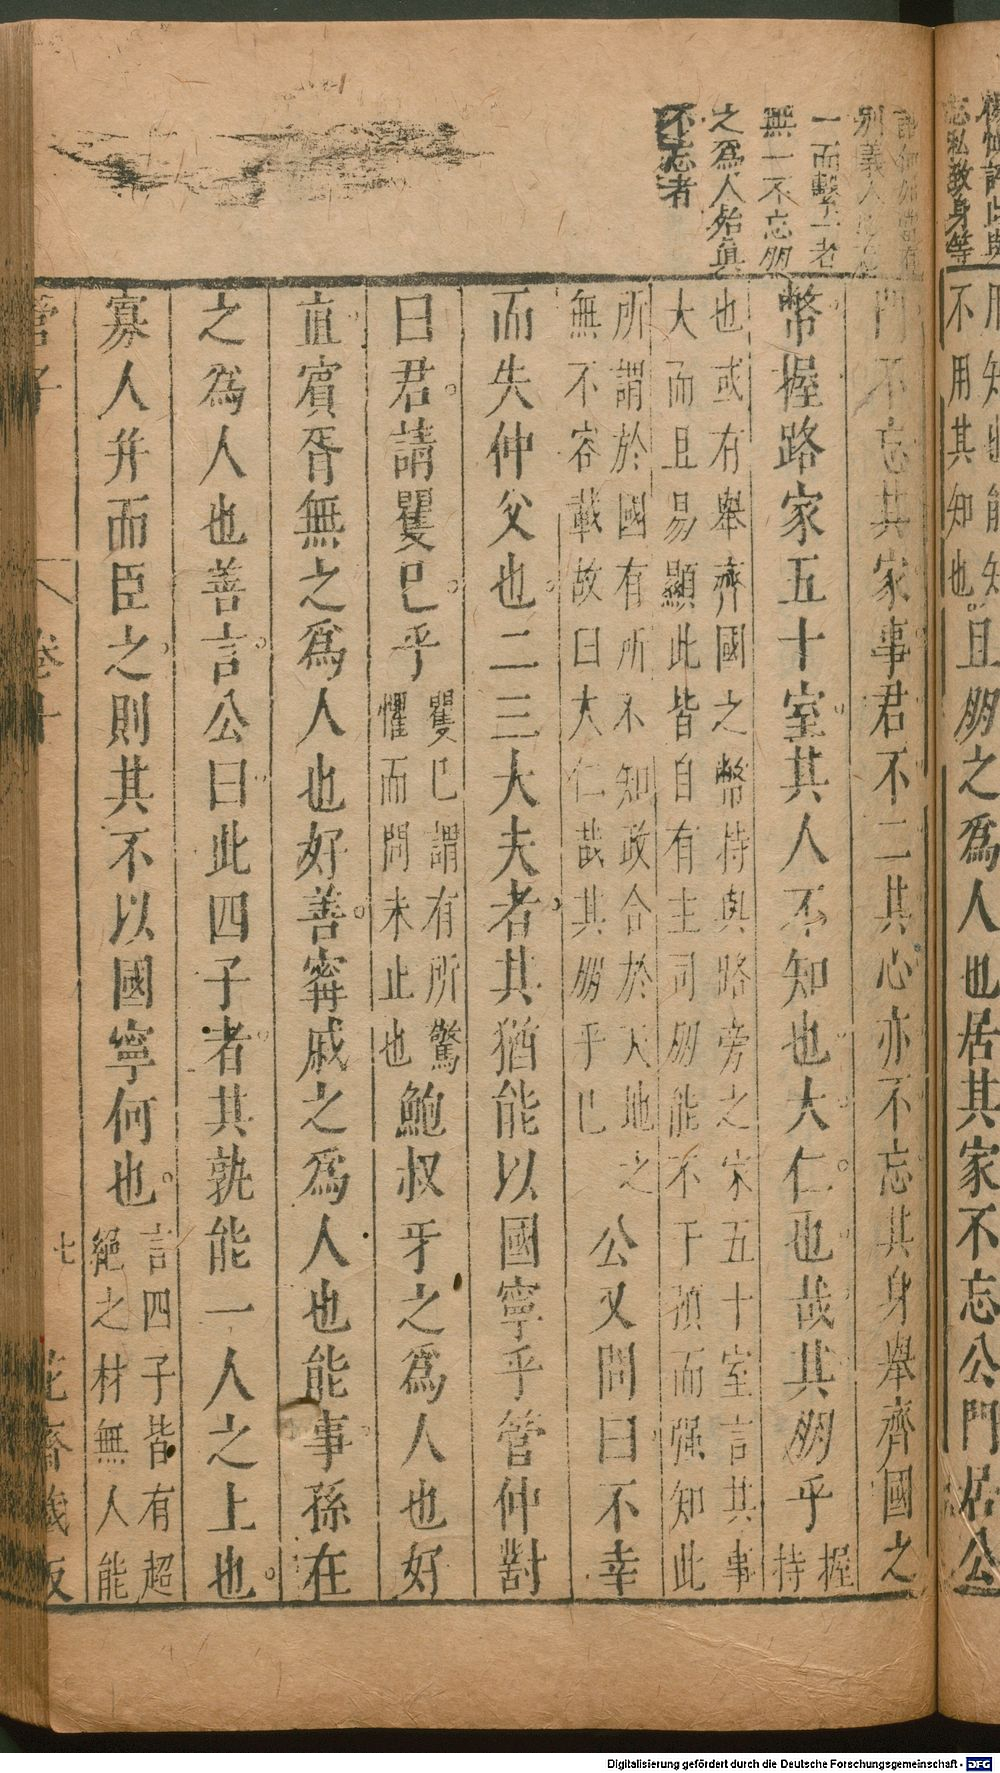 忘私敎身等
不用其知也且朋之爲人也居其家不忘公門居公
一而繫二者
無一不忘朋
之爲人殆眞
不忘者
門不忘其家事君不二其心亦不忘其身舉齊國之
幣握路家五十室其人不知也大仁也哉其朋乎
握
持
也或有舉齊國之幣持與路旁之家五十室言其事
大而且易顯此皆自有主司朋能不干預而强知此
所謂於國有所不知政合於天地之
無不容載故曰大仁哉其朋乎已
公又問曰不幸
而失仲父也二三大夫者其猶能以國寧乎管仲對
曰君請矍已乎
矍已謂有所驚
懼而問未止也
鮑叔牙之爲人也好
直賓胥無之爲人也好善甯戚之爲人也能事孫在
之爲人也善言公曰此四子者其孰能一人之上也
寡人幷而臣之則其不以國寧何也
言四子皆有超
絕之材無人能
管子
卷十
七
花齋藏板
Digitalisierung gefördert durch die Deutsche Forschungsgemeinschaft - DFG